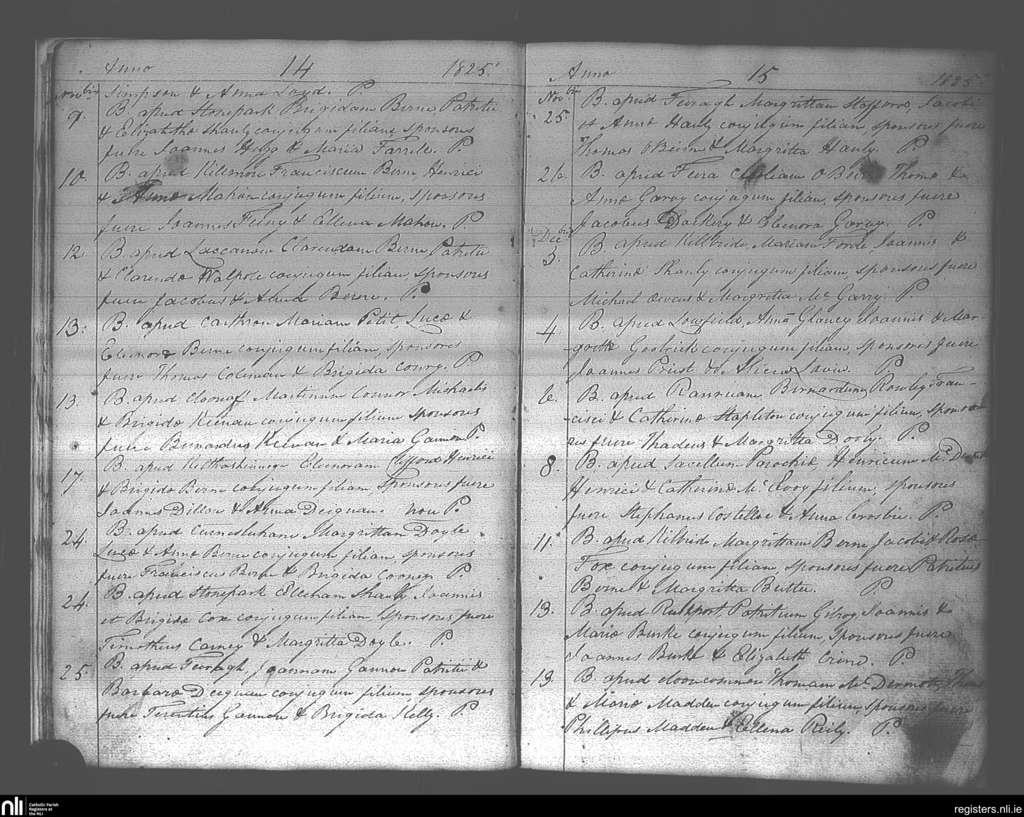 Anno 14 1825.
Novbr Simpson & Anna Loyd. P.
9. B. apud Stonepark Brigidam Berne, Patritii
& Elizabetha Shanly conjugum filiam sponsores
fuere Joannes Hugo & Maria Farrell. P.
10. B. apud Kilemon Franciscum Bern Henrici
& Anna Mahon conjugum filium, sponsores
fuere Joannes Feeny & Ellena Mahon. P.
12. B. apud Clarendam Berne Patritii
& Clarenda Walpole conjugum filiam sponsores
fuere Jacobus & Anna Berne. P.
13. B. apud Carthron Mariam Petit, Luca &
Eleonora Berne conjugum filiam, sponsores
fuere Thomas Coleman & Brigida Conry. P.
13. B. apud Martinum Connor Michaelis
& Brigida Keenan conjugum filium sponsores
fuere Bernardus Keenan & Maria Gannon P.
17. B. apud Eleonoram Clifford Henrici
& Brigida Bern conjugum filiam, Sponsores fuere
Joannes Dillon & Anna Deignan. non P.
24. B. apud Margrittam Doyle
Luca & Anna Berne conjugum filiam, sponsores
fuere Franciscus Berne & Brigida P.
24. B. apud Stonepark Shanly Joannis
et Brigida Cox conjugum filiam, Sponsores fuere
Timotheus Carney & Margritta Doyle. P.
25. B. apud Joannam Gannon Patritii &
Barbara Deignan conjugum filiam sponsores
fuere Gannon & Brigida Kelly. P.
Anno 15 1825.
Novbr 25. B. apud Margrittam Stafford, Jacobi
et Anna Hanly conjugum filiam, sponsores fuere
Thomas OBeirn & Margritta Hanly. P.
26. B. apud OBeirn Thoma &
Anna Garvy conjugum filiam, sponsores fuere
Jacobus & Elenora Garvy. P.
Decbr 3. B. apud Kilbride Mariam Forde, Joannis &
Catherina Shanly conjugum filiam, sponsores fuere
Michael Owens & Margritta McGarry. P.
4 B. apud Lowfield, Anna Glancy Joannis & Mar-
gritta conjugum filiam, sponsores fuere
Joannes Priest & P.
6. B. apud Bernardum Rowley Fran-
cisci & Catherina Stapleton conjugum filium, sponso-
res fuere Thadeus & Margritta Dooly. P.
8. B. apud Sacellum Parochia, Henricum
Henrici & Catherina McEvoy filium, sponsores
fuere Stephanus Costelloe & Anna Crosbie. P.
11. B. apud Kilbride Margrittam Berne Jacobi & Rosa
Fox conjugum filiam, sponsores fuere Patritius
Berne & Margritta Butler. P.
13. B. apud Patritium Gilroy Joannis &
Maria Burke conjugum filium, Sponsores fuere
Joannes Burke & Elizabeth P.
13 B. apud Clooncommon Thomam McDermott, Thoma
& Maria Madden conjugum filium, sponsores fuere
Phillipus Madden & Ellena Reily. P.
nli Catholic Parish
Registers at
the NLI
registers.nli.ie